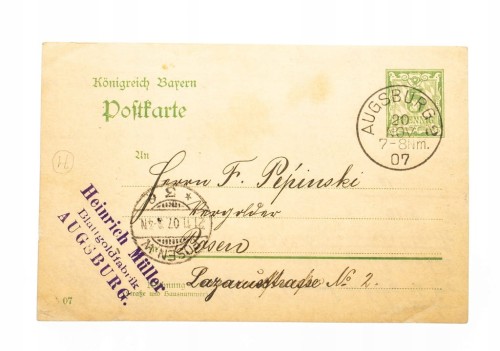 Königreich Bayern
Postkarte
5
PFENNIG
AUGSBURG 9
20
NOV
7-8Nm.
07
An
Herrn F. Pepinski
Vergolder
Posen
Lazarusstrasse No 2.
Heinrich Müller
Blattgoldfabrik
AUGSBURG.
POSEN
11.07
Straße und Hausnummer
07